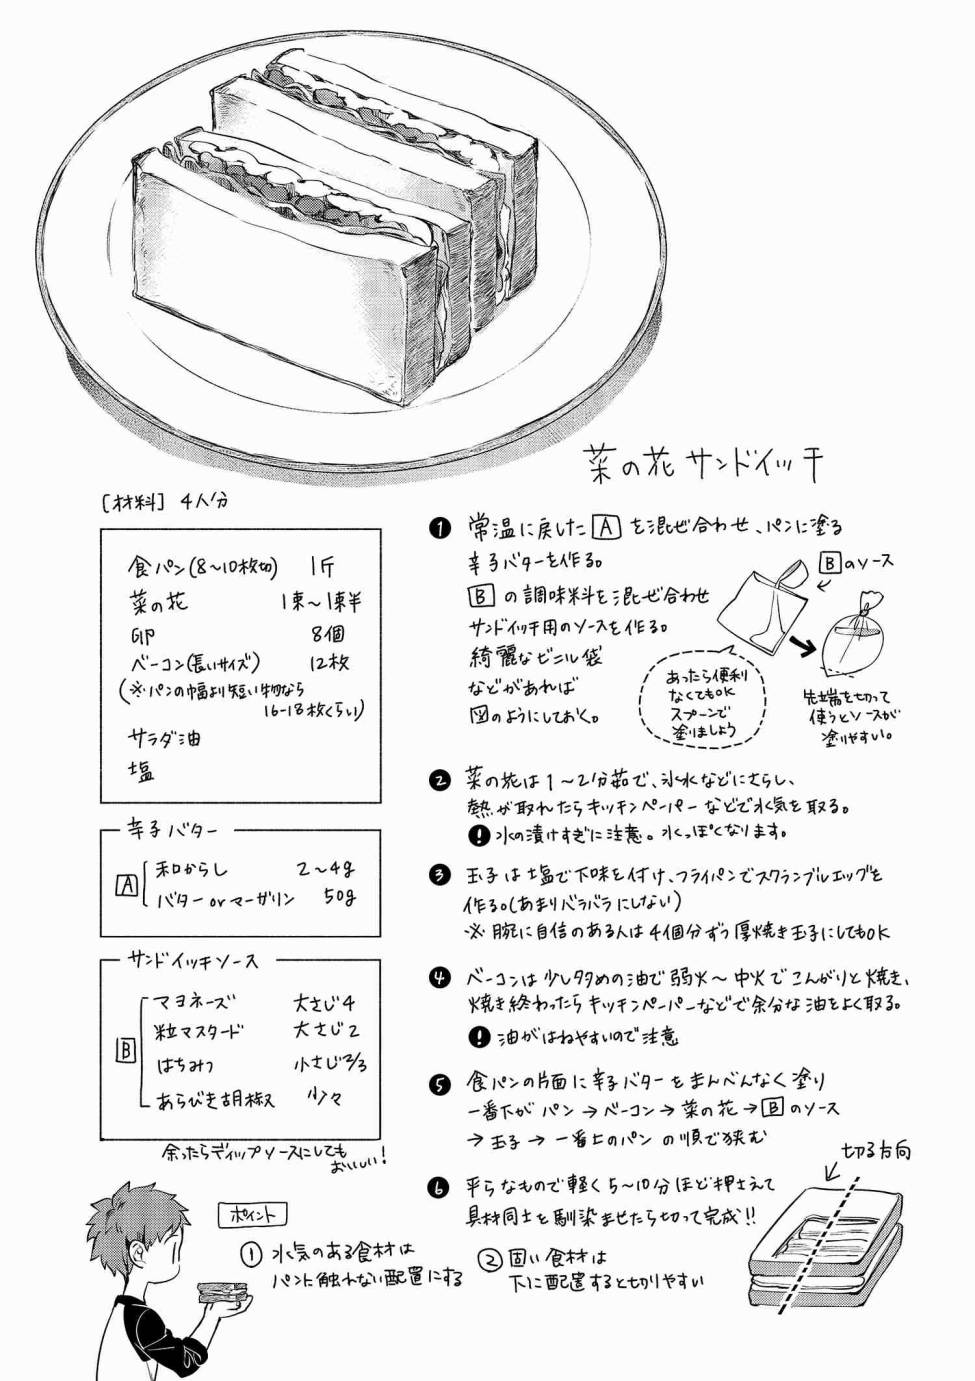 菜の花サンドイッチ
[材料] 4人分
食パン(8〜10枚切) 1斤
菜の花 1束〜1束半
卵 8個
ベーコン(長いサイズ) 12枚
(※パンの幅より短い物なら
16-18枚くらい)
サラダ油
塩
辛子バター
A
和からし 2〜4g
バターorマーガリン 50g
サンドイッチソース
B
マヨネーズ 大さじ4
粒マスタード 大さじ2
はちみつ 小さじ2/3
あらびき胡椒 少々
余ったらディップソースにしても
おいしい!
❶ 常温に戻したAを混ぜ合わせ、パンに塗る
辛子バターを作る。
Bの調味料を混ぜ合わせ
サンドイッチ用のソースを作る。
綺麗なビニル袋
などがあれば
図のようにしておく。
Bのソース
あったら便利
なくてもOK
スプーンで
塗りましよう
先端を切って
使うとソースが
塗りやすい。
❷ 菜の花は1〜2分茹で、氷水などにさらし、
熱が取れたらキッチンペーパーなどで水気を取る。
! 水の漬けすぎに注意。水っぽくなります。
❸ 玉子は塩で下味を付け、フライパンでスクランブルエッグを
作る。(あまりバラバラにしない)
※腕に自信のある人は4個分ずつ厚焼き玉子にしてもOK
❹ ベーコンは少し多めの油で弱火〜中火でこんがりと焼き、
焼き終わったらキッチンペーパーなどで余分な油をよく取る。
! 油がはねやすいので注意
❺ 食パンの片面に辛子バターをまんべんなく塗り
一番下がパン→ベーコン→菜の花→Bのソース
→玉子→一番上のパンの順で狭む
❻ 平らなもので軽く5〜10分ほど押さえて
具材同士を馴染ませたら切って完成!!
切る方向
ポイント
① 水気のある食材は
パンに触れない配置にする
② 固い食材は
下に配置すると切りやすい